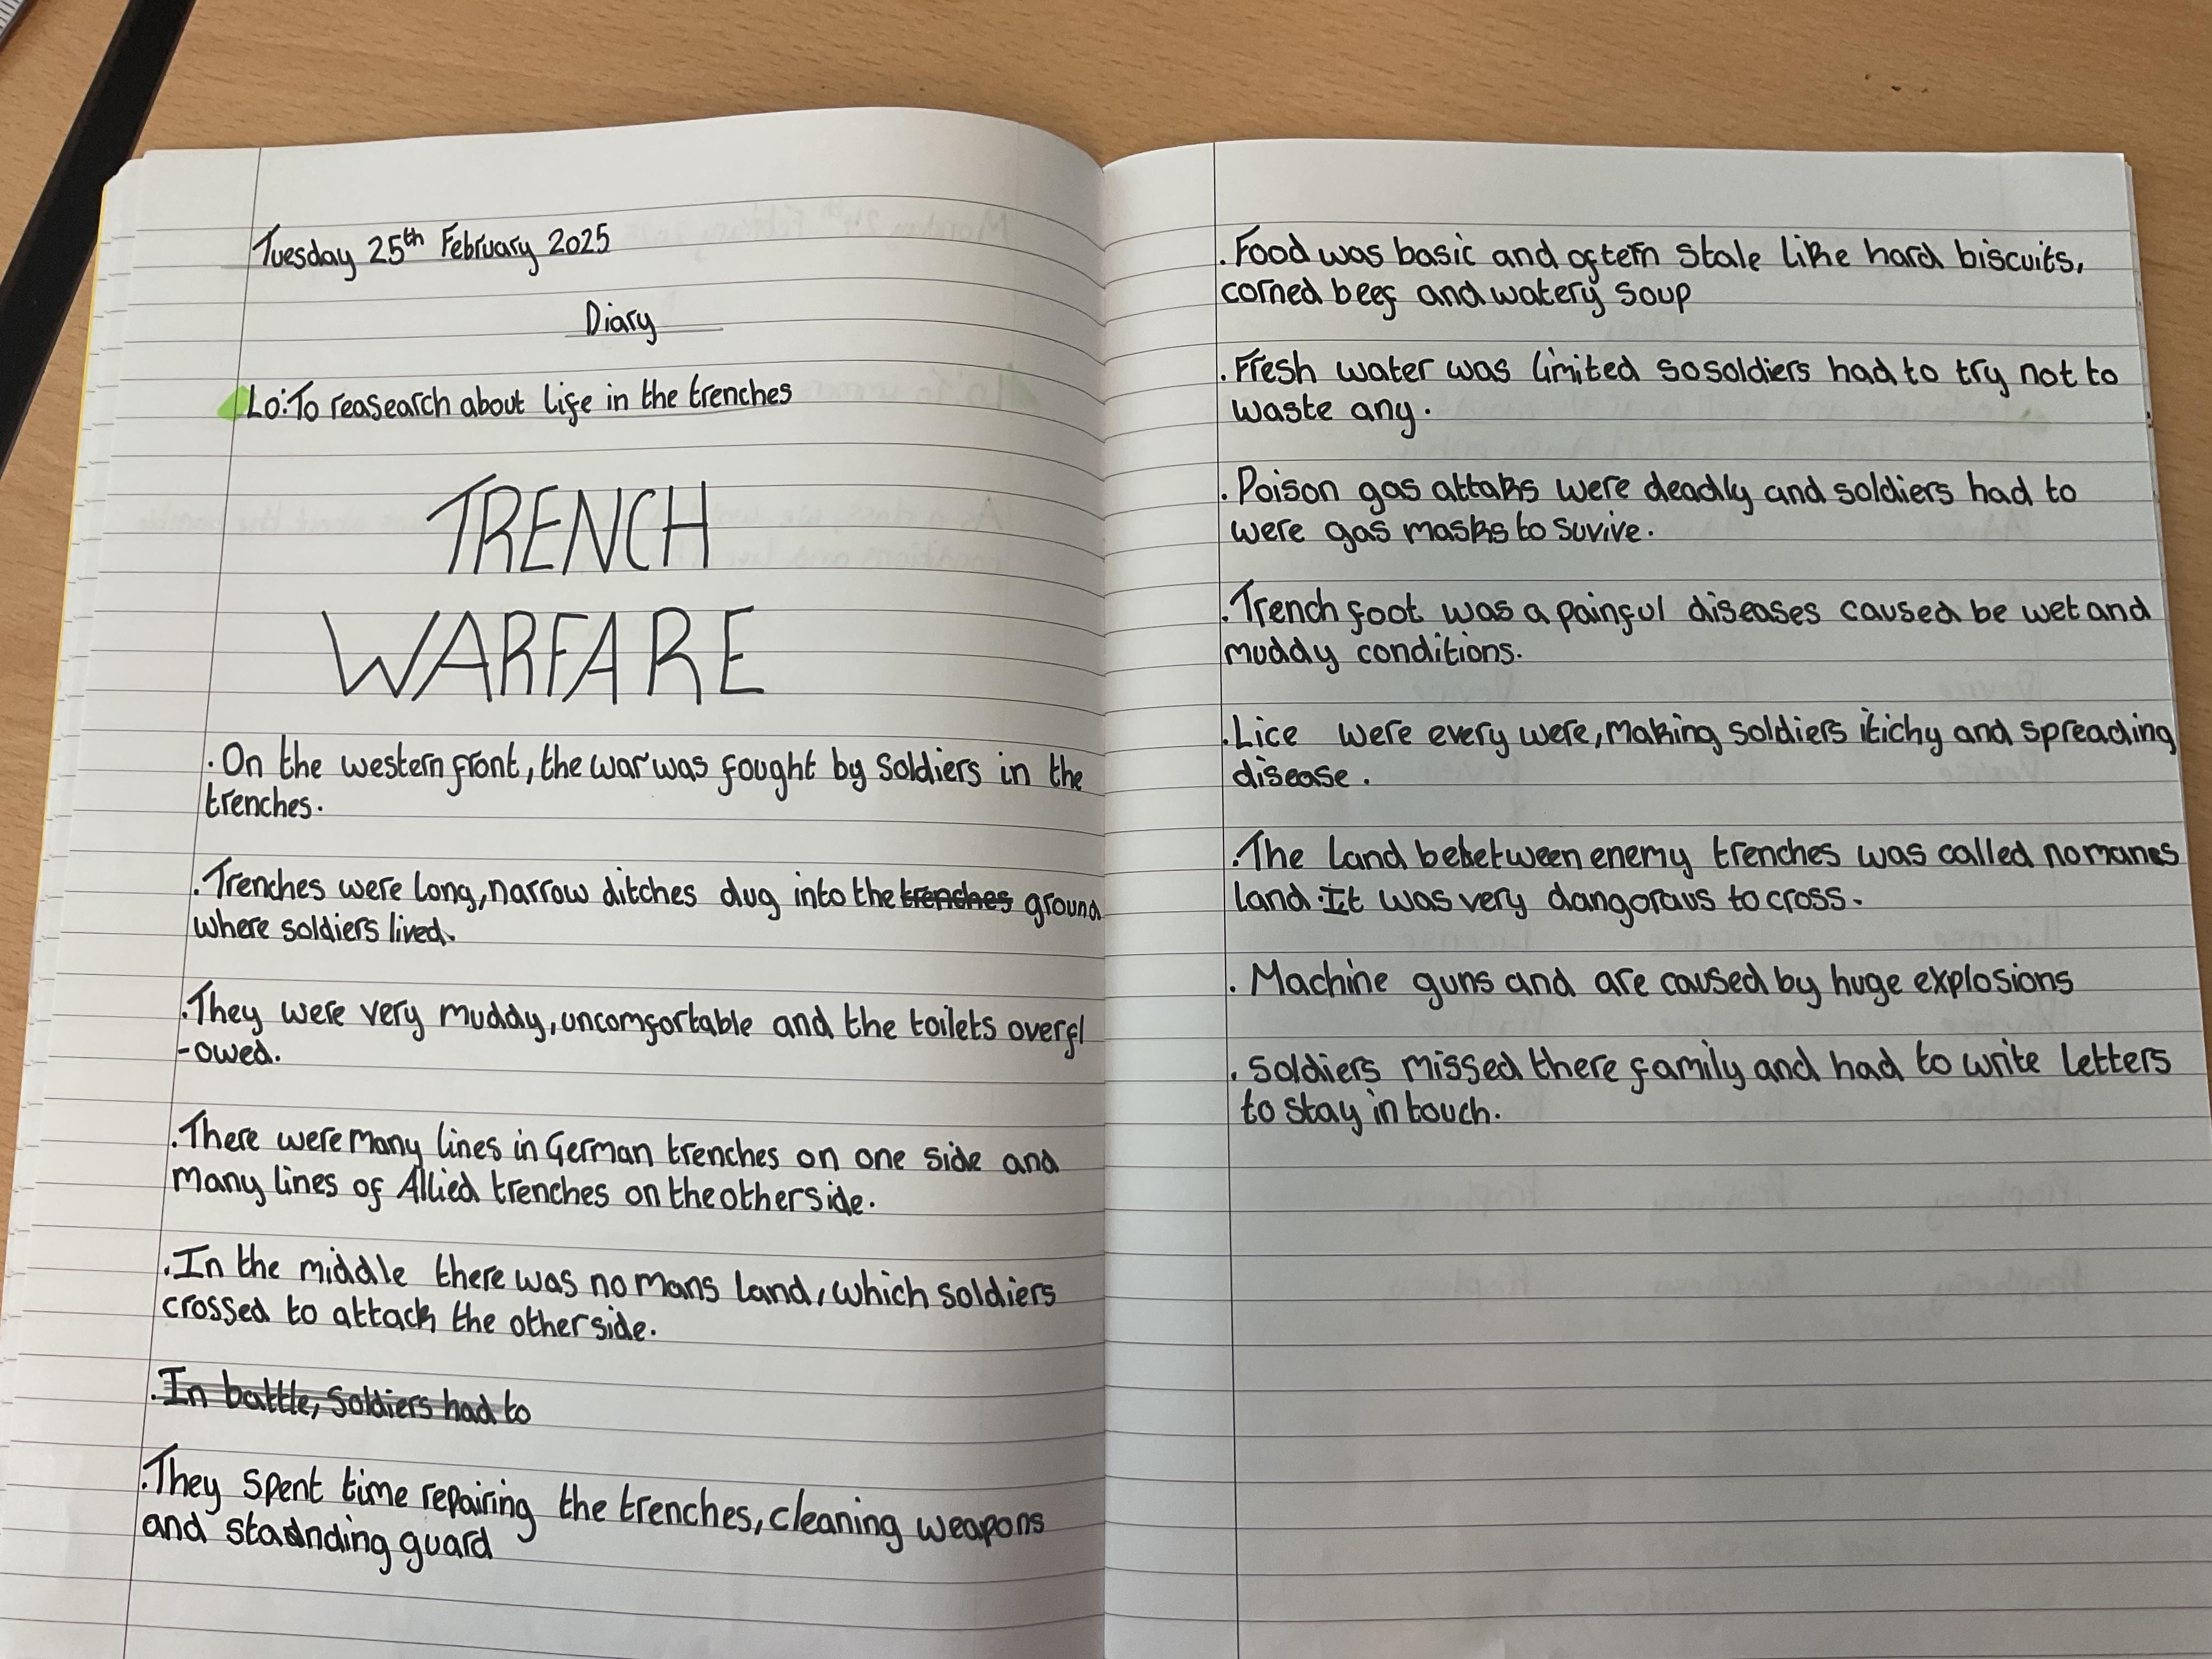 Tuesday 25th February 2025
Diary
Lo: To reasearch about life in the trenches
TRENCH
WARFARE
. On the western front, the war was fought by soldiers in the
trenches.
. Trenches were long, narrow ditches dug into the trenches ground
where soldiers lived.
. They were very muddy, uncomfortable and the toilets overfl
-owed.
. There were many lines in German trenches on one side and
many lines of Allied trenches on the other side.
. In the middle there was no mans land, which soldiers
crossed to attack the other side.
. In battle, soldiers had to
. They spent time repairing the trenches, cleaning weapons
and standing guard
. Food was basic and oftern stale like hard biscuits,
corned beef and watery soup
. Fresh water was limited so soldiers had to try not to
waste any.
. Poison gas attaks were deadly and soldiers had to
were gas masks to survive.
. Trench foot was a painful diseases caused be wet and
muddy conditions.
. Lice were every were, making soldiers itichy and spreading
disease.
. The land bebetween enemy trenches was called no manes
land. It was very dangoraus to cross.
. Machine guns and are caused by huge explosions
. Soldiers missed there family and had to write letters
to stay in touch.